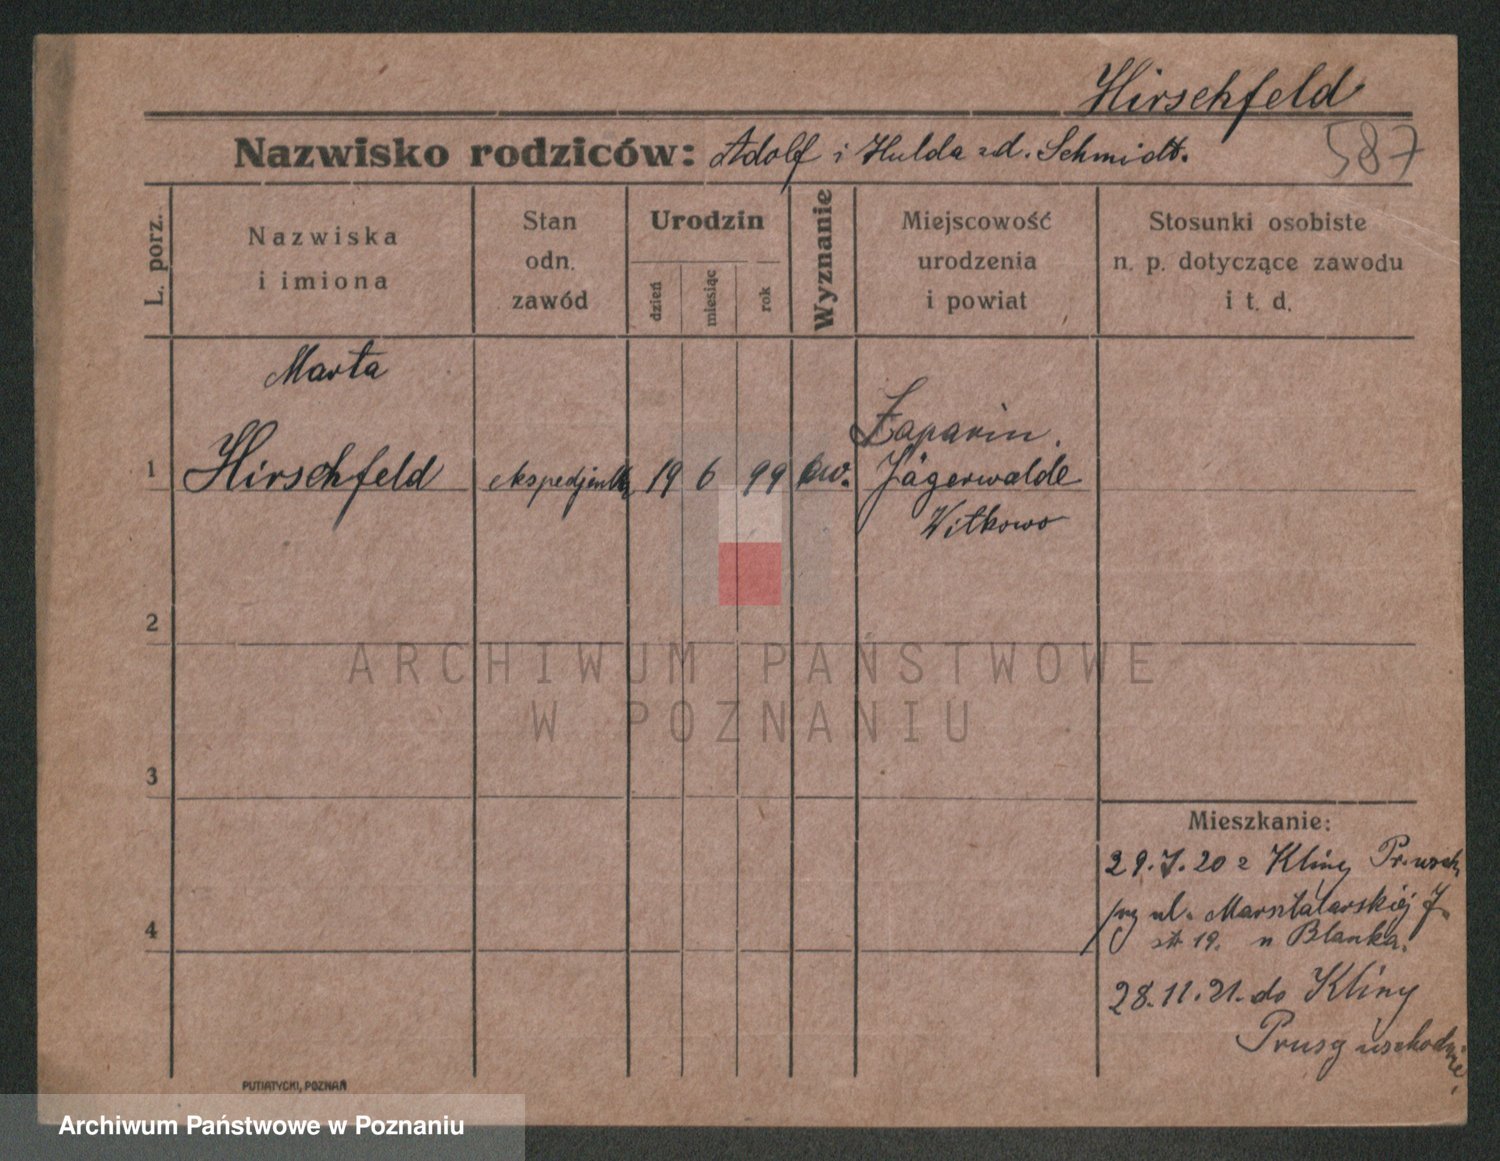 Hirschfeld
Nazwisko rodziców: Adolf i Hulda zd. Schmidt.
587
L. porz.
Nazwiska
i imiona
Stan
odn.
zawód
Urodzin
dzień
miesiąc
rok
Wyznanie
Miejscowość
urodzenia
i powiat
Stosunki osobiste
n. p. dotyczące zawodu
i t. d.
Marta
1 Hirschfeld ekspedjentka 19 6 99 ew.
Jägerwalde
Witkowo
2
3
4
ARCHIWUM PAŃSTWOWE
W POZNANIU
Mieszkanie:
29.7.20 z Kliny Pr. wsch.
ul. Marsztalarskiej 7.
19. u Blanka.
28.11.21. do Kliny
Prusy wschodnie.
PUTIATYCKI, POZNAŃ
Archiwum Państwowe w Poznaniu